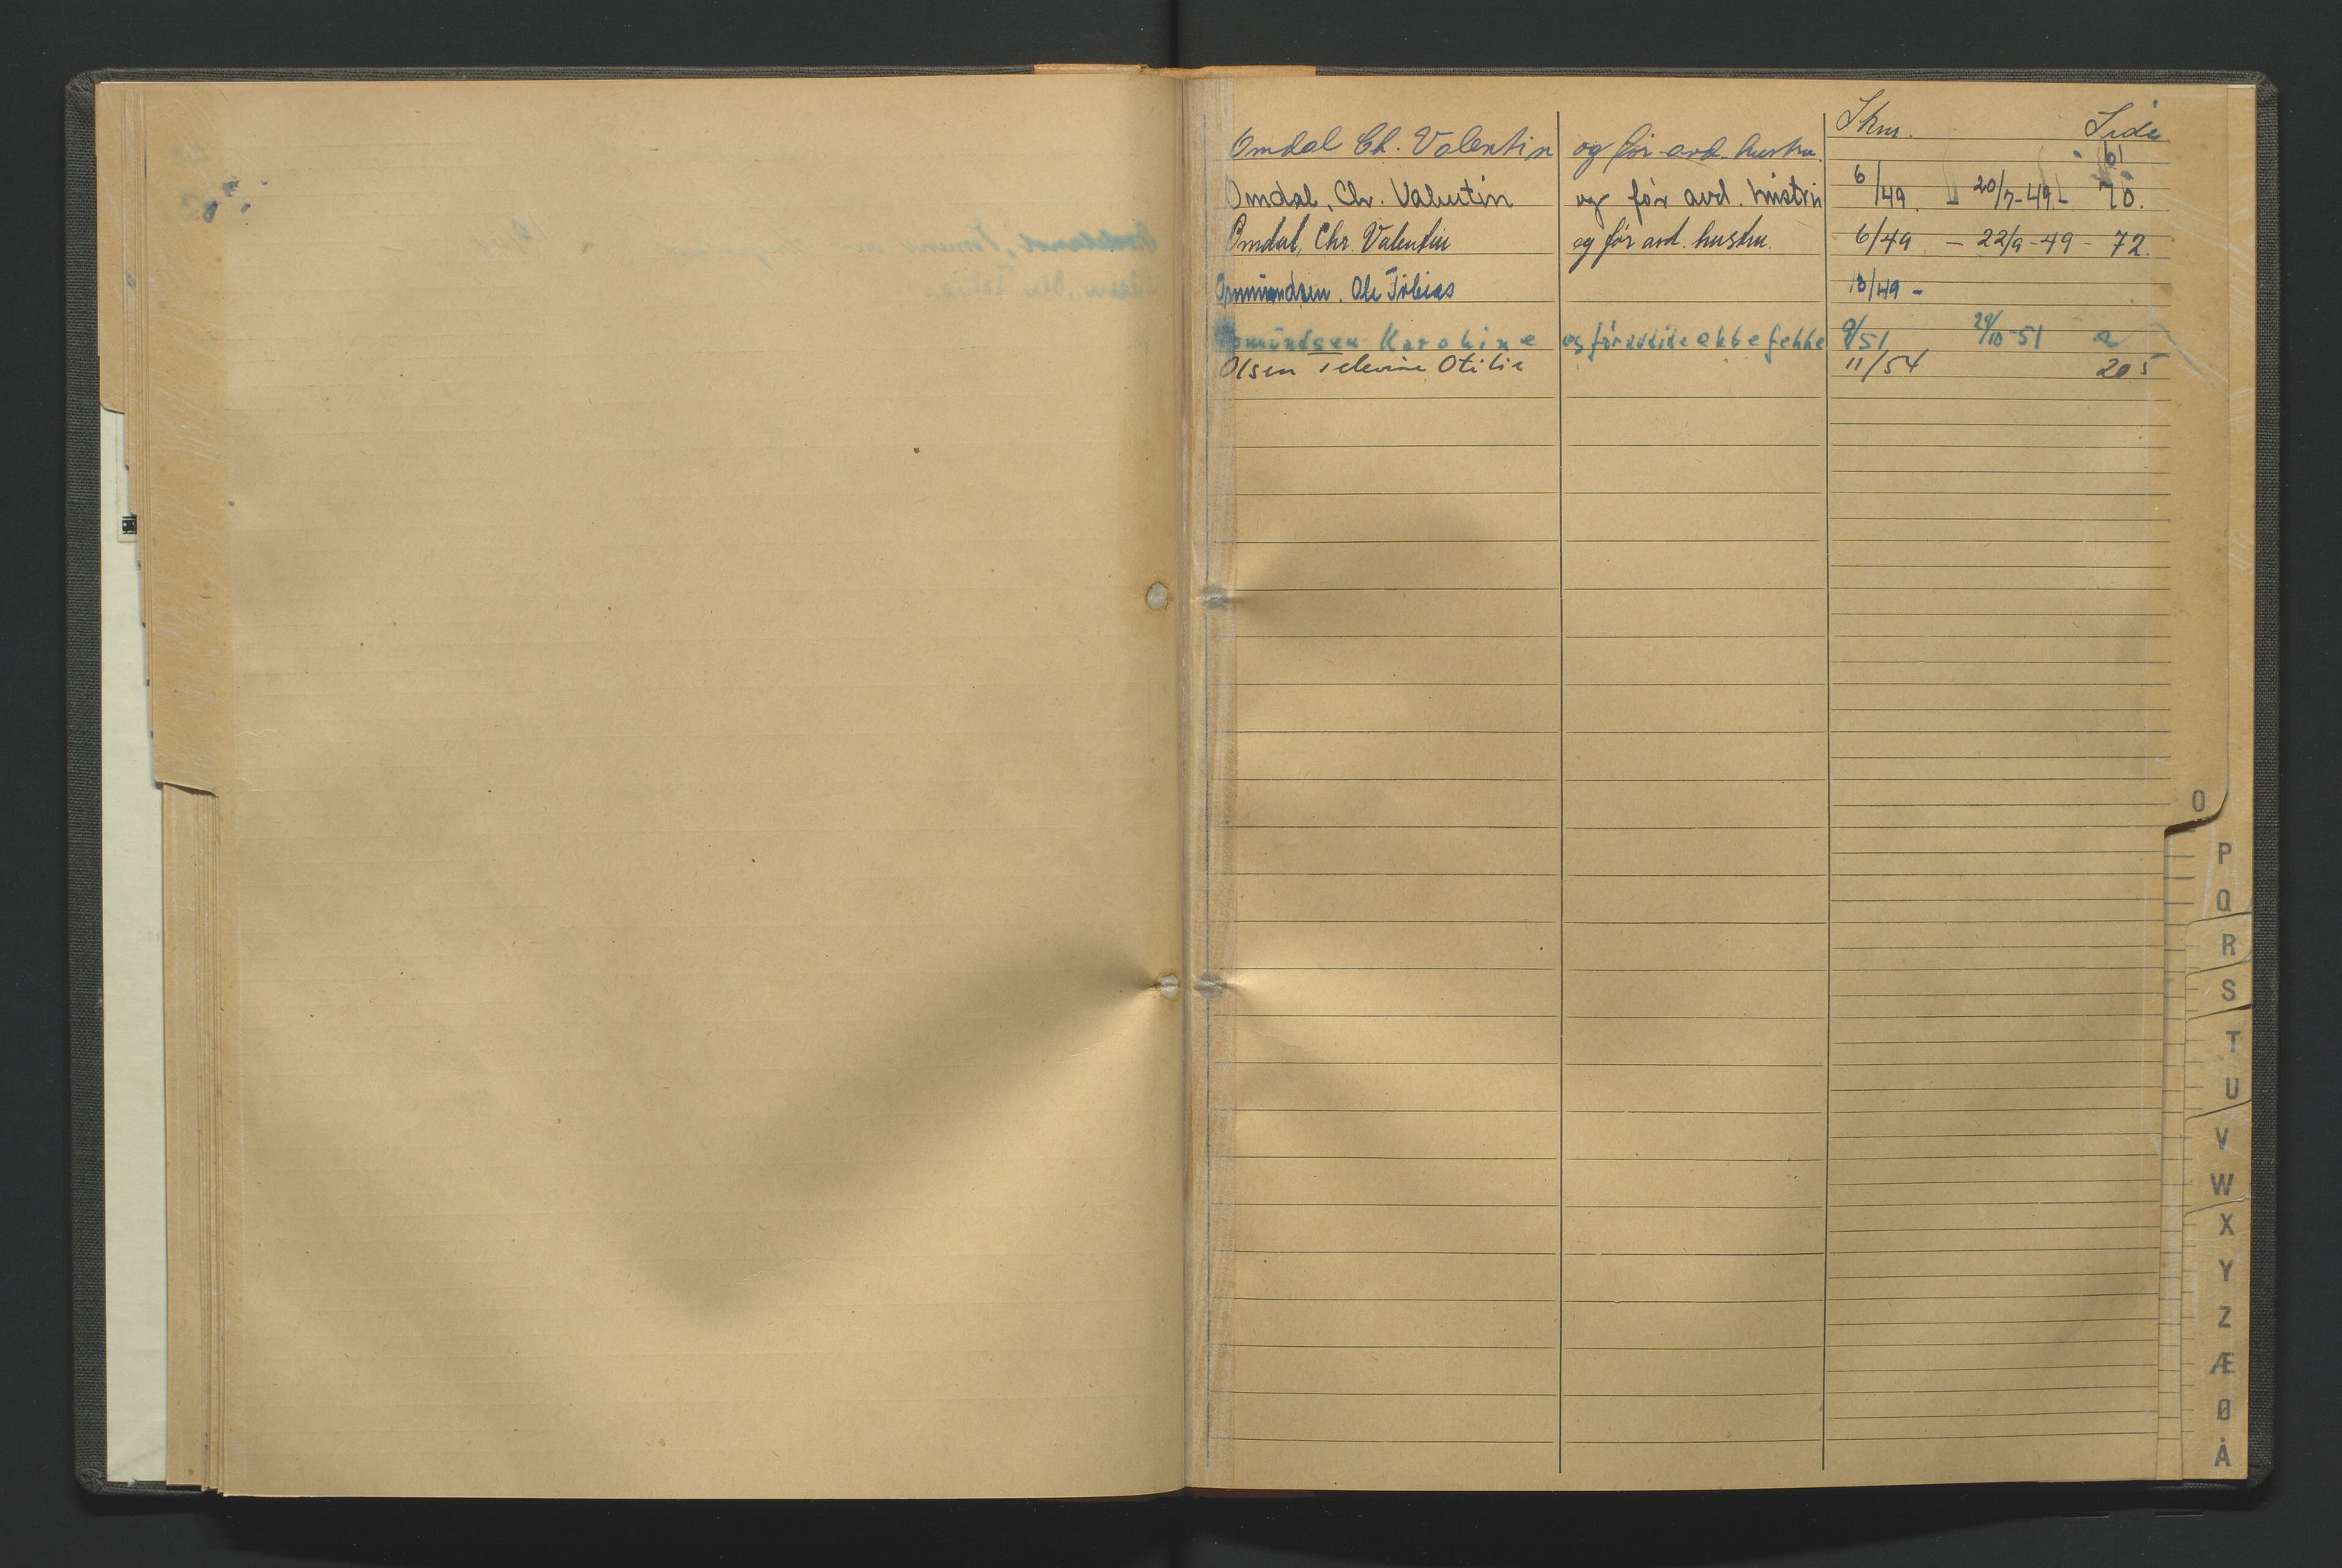 Skm. Side
Omdal Ch. Valentin og før avd. hustru. 61
Omdal, Chr. Valentin og før avd. hustru 6/49. - 20/7-49- 70.
Omdal, Chr. Valentin og før avd. hustru. 6/49 - 22/9-49- 72.
Ommundsen. Ole Tobias 13/49 -
Omundsen Karoline og før avdøde ektefelle 9/51 29/10-51
Olsen Televine Otilie 11/54 205
O
P
Q
R
S
T
U
V
W
X
Y
Z
Æ
Ø
Å